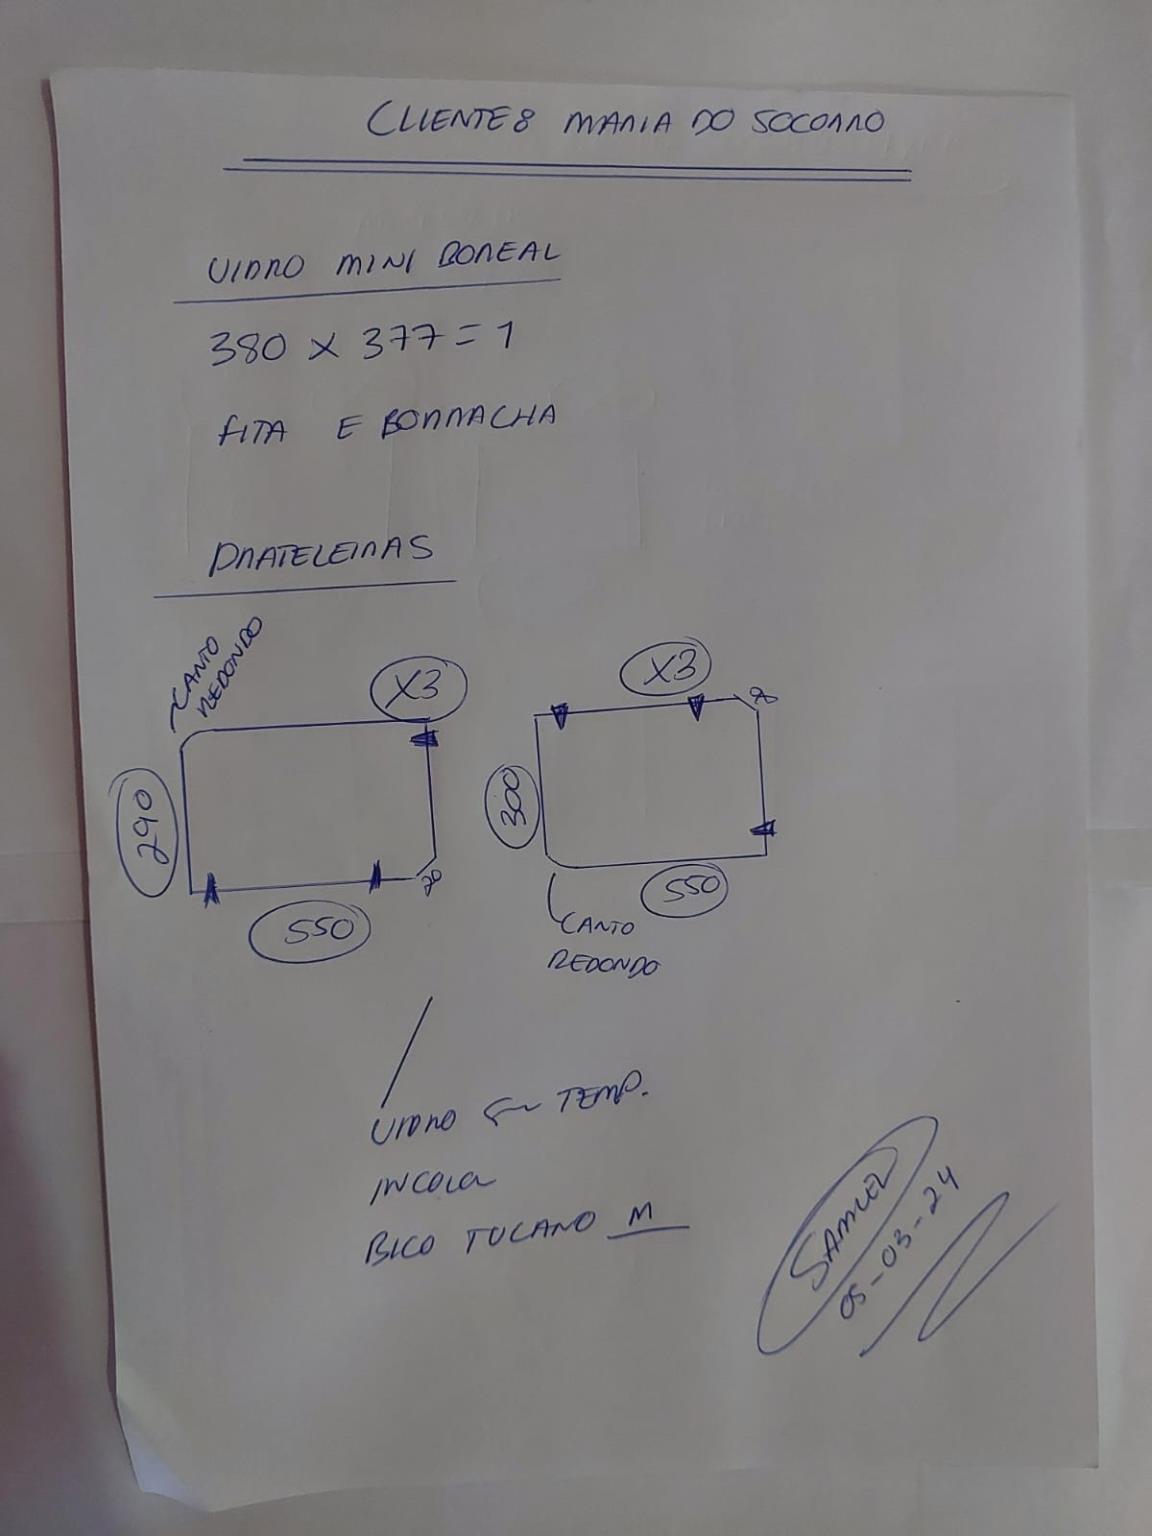 CLIENTE: MARIA DO SOCORRO
VIDRO MINI BOREAL
380 X 377 = 1
FITA E BORRACHA
PRATELEIRAS
CANTO
REDONDO
X3
290
550
X3
300
550
CANTO
REDONDO
VIDRO TEMP.
INCOLOR
BICO TUCANO M
SAMUEL
05-03-24